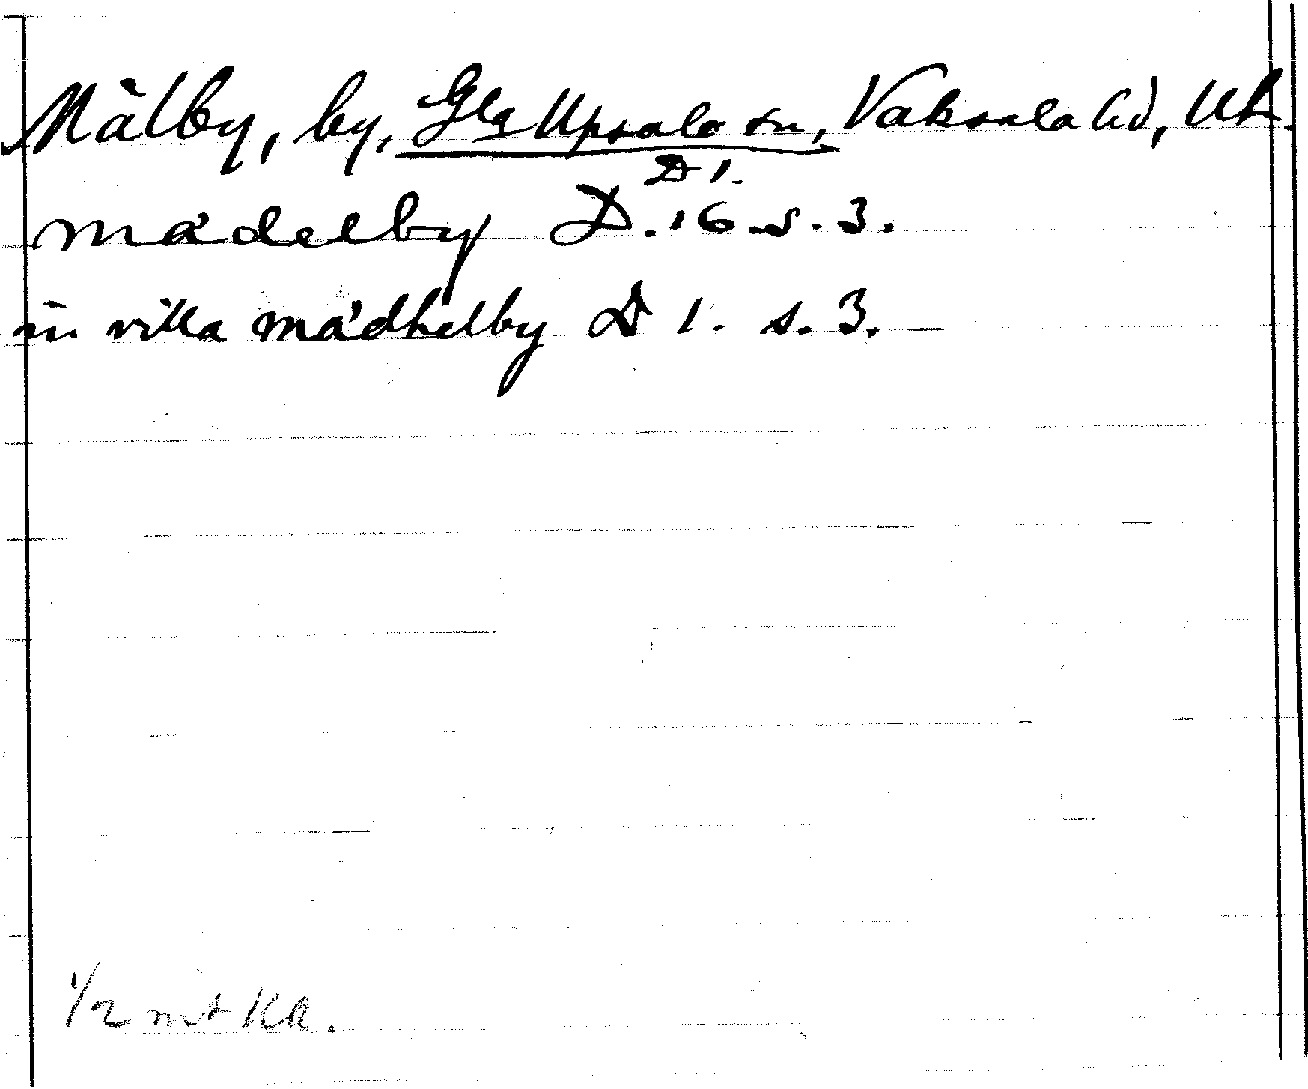 Mälby, by, Gla Upsala sn, Vaksala hd, Upl.
D 1.
mädelby D. 16. s. 3.
in villa mädhelby D 1. s. 3. —
1/2 mt KR.